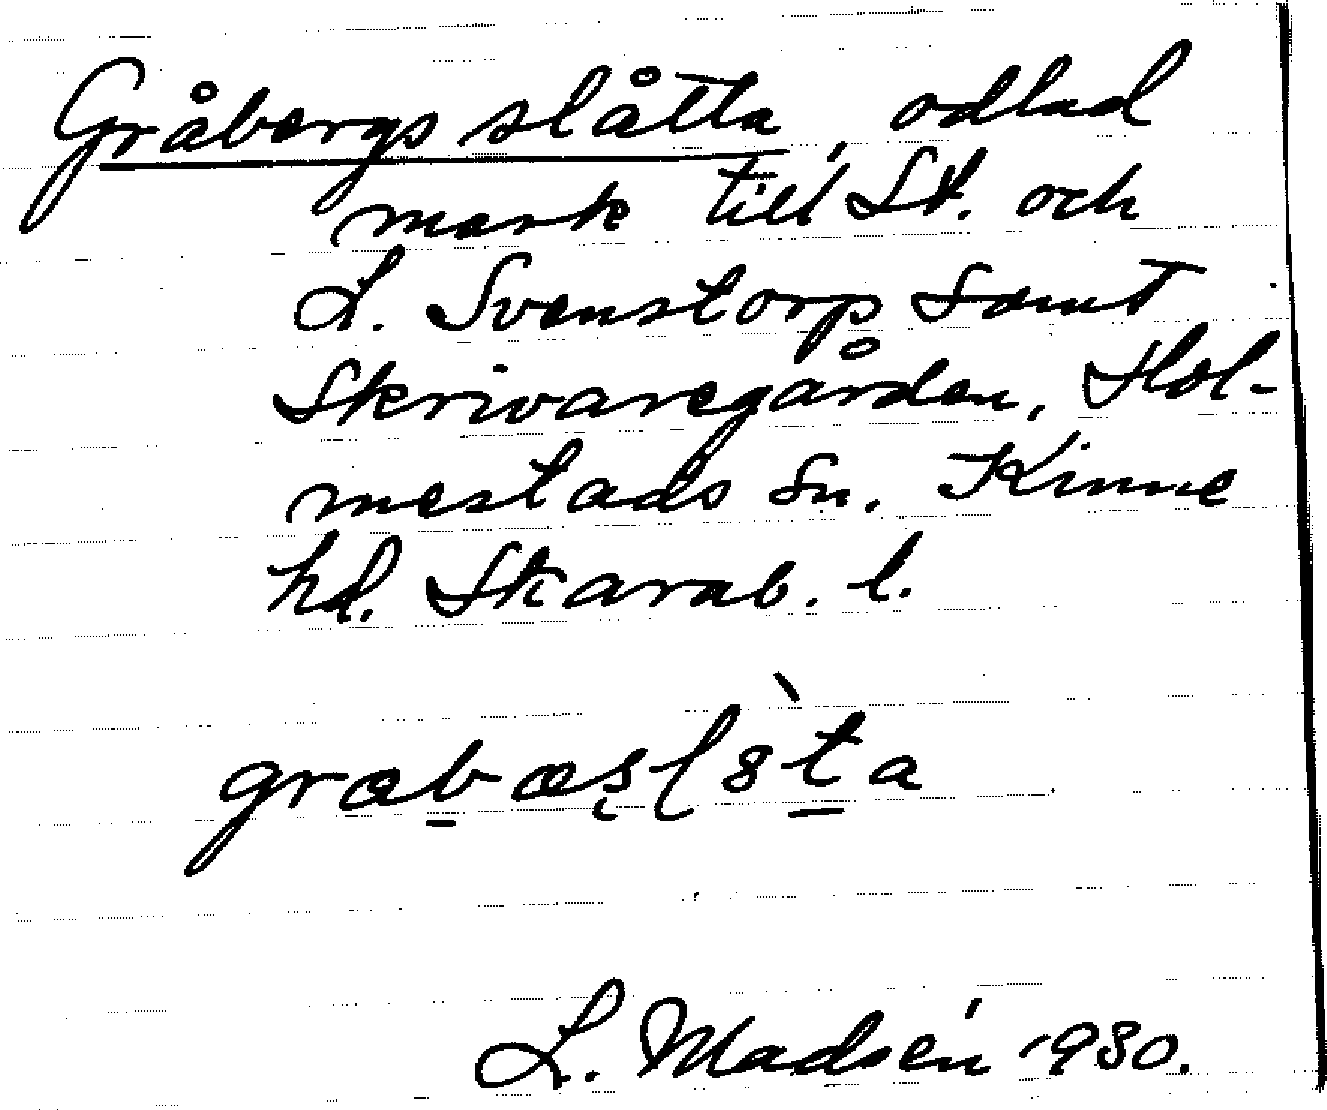 Gråbergsslätta, odlad
mark till St. och
L. Svenstorp samt
Skrivaregården, Hol-
mestads sn. Kinne
hd. Skarab. l.
L. Madsén 1930.